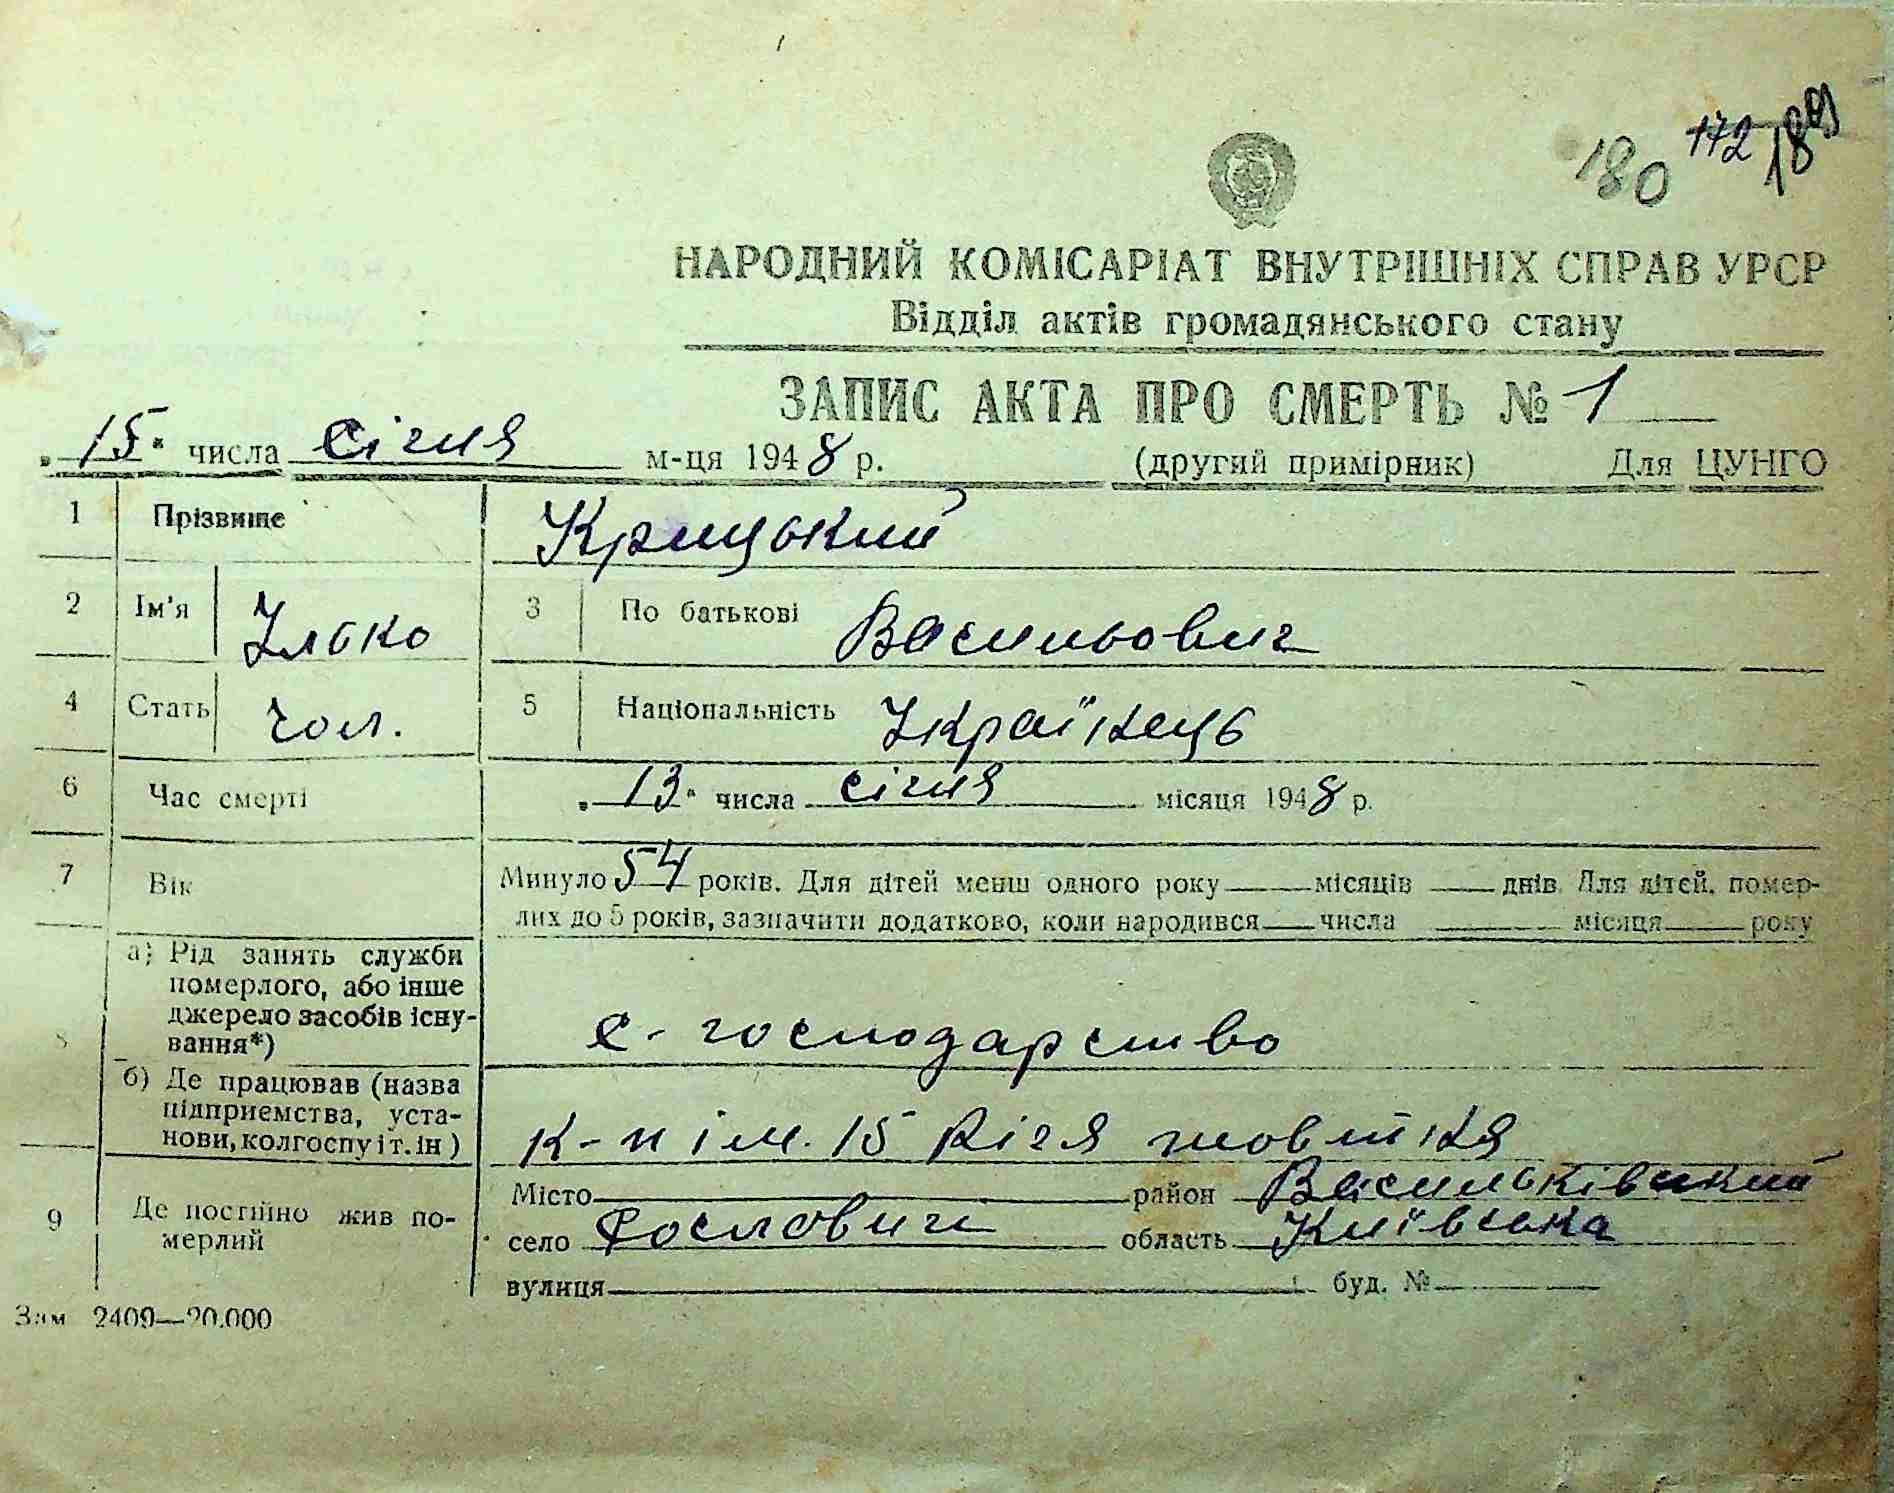 180 172 189
НАРОДНИЙ КОМІСАРІАТ ВНУТРІШНІХ СПРАВ УРСР
Відділ актів громадянського стану
ЗАПИС АКТА ПРО СМЕРТЬ № 1
„15“ числа січня м-ця 1948 р. (другий примірник) Для ЦУНГО
1 Прізвище Крицький
2 Ім'я Ілько 3 По батькові Васильович
4 Стать чол. 5 Національність Українець
6 Час смерті „13“ числа січня місяця 1948 р.
7 Вік Минуло 54 років. Для дітей менш одного року місяців днів Для дітей, помер-
лих до 5 років, зазначити додатково, коли народився числа місяця року
8 а) Рід занять служби
померлого, або інше
джерело засобів існу-
вання*)
с-господарство
б) Де працював (назва
підприємства, уста-
нови, колгоспу і т. ін)
к-п ім. 15 Річя жовтня
9 Де постійно жив по-
мерлий
Місто район Васильківський
село Рославичі область Київська
вулиця буд. №
Зам 2409—20.000